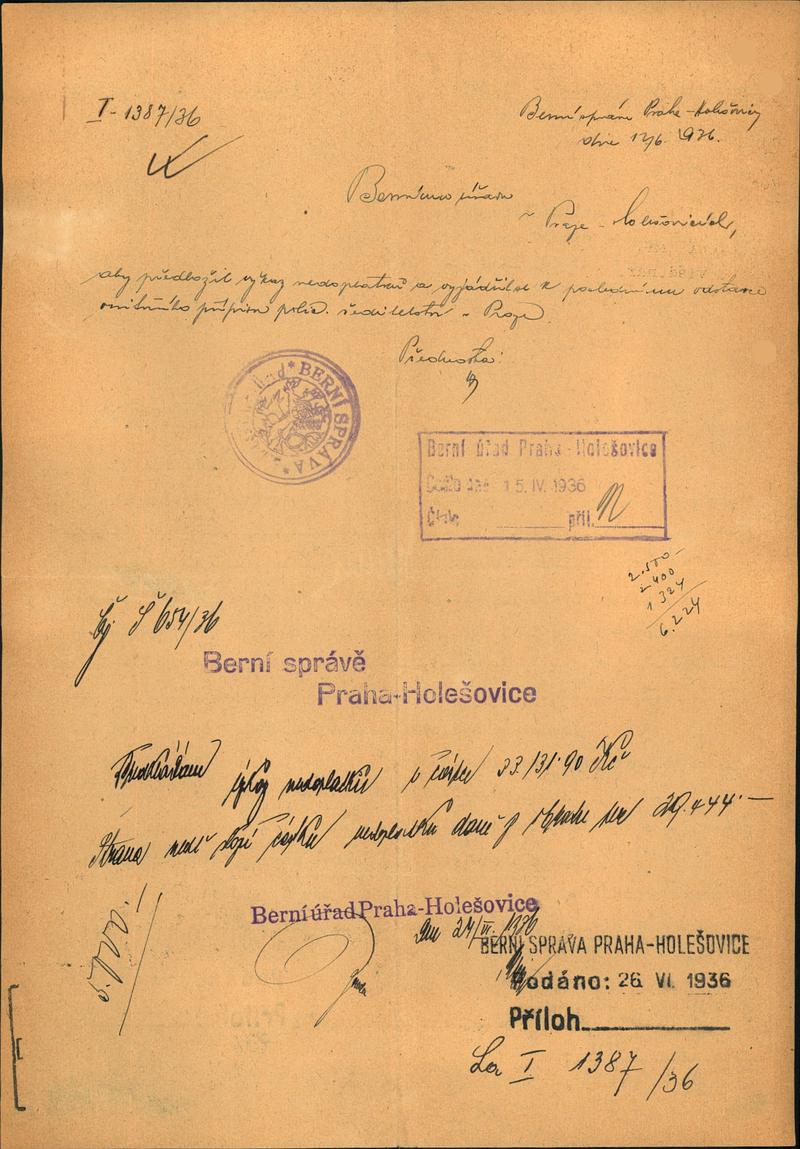 I - 1387/36
Berní správa Praha-Holešovice
dne 12/6. 1936.
Bernímu úřadu
v Praze - Holešovicích,
aby předložil výkaz nedoplatků a vyjádřil se k poslednímu odstavci
vnitřního přípisu polic. ředitelství v Praze
Přednosta:
BERNÍ SPRÁVA
Berní úřad Praha-Holešovice
Došlo dne 15. IV. 1936
Číslo příl.
2.500
2.400
1.324
6.224
Čj. Š 654/36
Berní správě
Praha-Holešovice
Předkládám výkaz nedoplatků v částce 33.131·90 Kč
Strana nedoplatků daně z 29.444·—
Berní úřad Praha-Holešovice
dne 24/VI. 1936
BERNÍ SPRÁVA PRAHA-HOLEŠOVICE
Podáno: 26. VI. 1936
Příloh
La I 1387/36